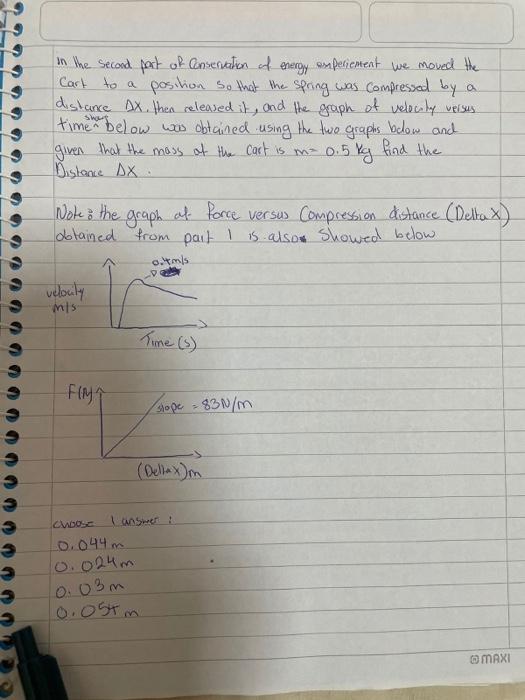 in the second part of Conservation of energy experiement we moved the
Cart to a position so that the spring was compressed by a
distance ΔX. then released it, and the graph of velocity versus
time show below was obtained using the two graphs below and
given that the mass of the Cart is m= 0.5 kg find the
Distance ΔX.
Note: the graph of force versus Compression distance (Delta X)
obtained from part 1 is also showed below
0.4m/s
velocity
m/s
Time (s)
F(N)
slope = 83N/m
(Delta X)m
choose 1 answer :
0.044 m
0.024m
0.03 m
m
MAXI